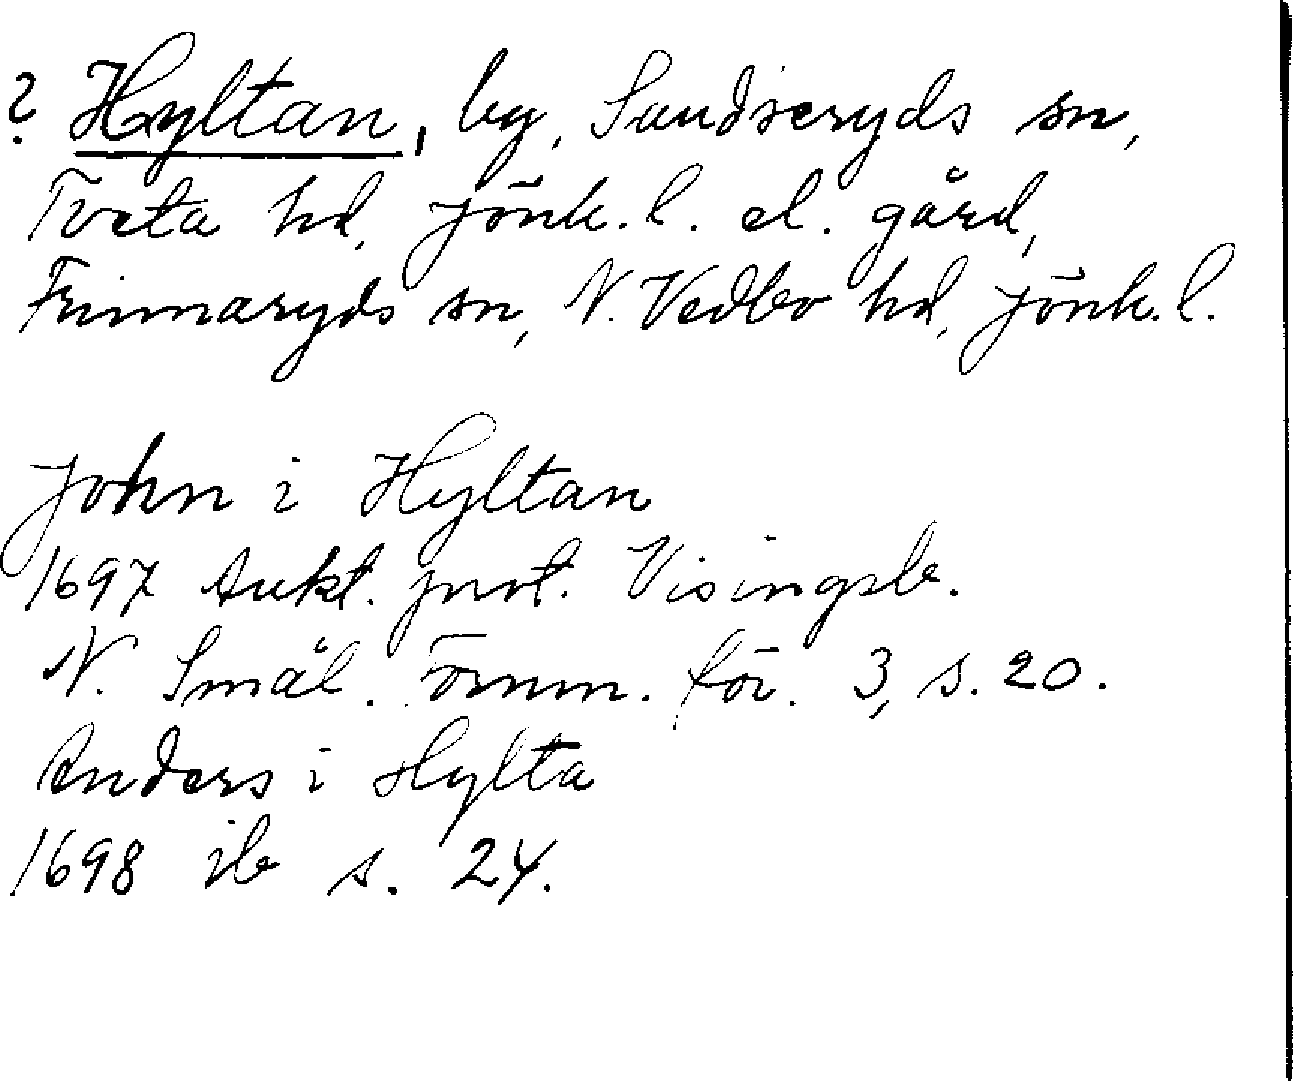 ? Hyltan, by, Sandseryds sn,
Tveta hd, Jönk. l. el. gård,
Frinnaryds sn, N. Vedbo hd, Jönk. l.
John i Hyltan
1697 Aukt. prot. Visingsb.
N. Smål. fornm. för. 3, s. 20.
Anders i Hylta
1698 ib s. 24.